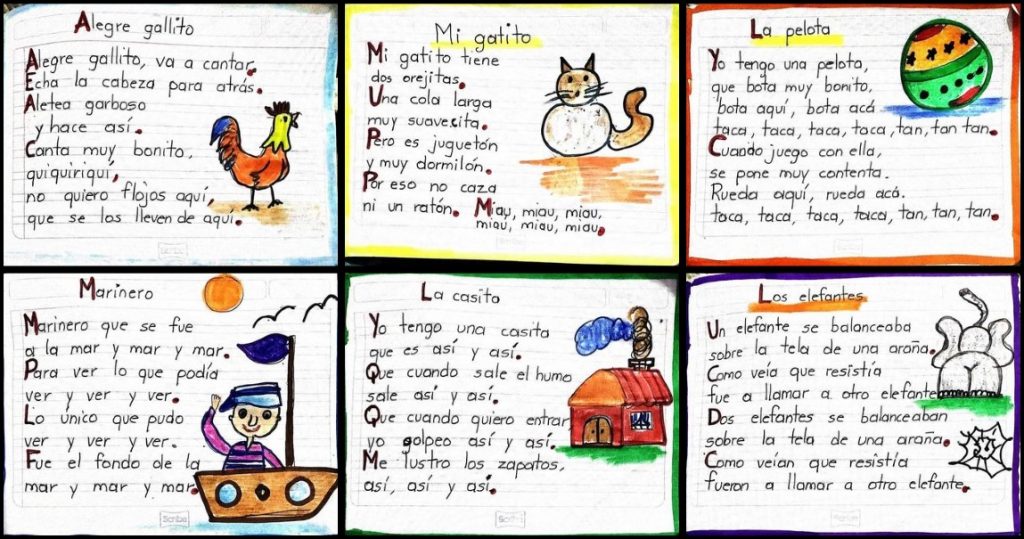 Alegre gallito
Alegre gallito, va a cantar.
Echa la cabeza para atrás.
Aletea garboso
y hace así.
Canta muy bonito,
quiquiriquí,
no quiero flojos aquí,
que se los lleven de aquí.
Mi gatito
Mi gatito tiene
dos orejitas.
Una cola larga
muy suavecita.
Pero es juguetón
y muy dormilón.
Por eso no caza
ni un ratón.
Miau, miau, miau,
miau, miau, miau.
La pelota
Yo tengo una pelota,
que bota muy bonito,
bota aquí, bota acá
taca, taca, taca, taca, tan, tan tan.
Cuando juego con ella,
se pone muy contenta.
Rueda aquí, rueda acá.
taca, taca, taca, taca, tan, tan, tan.
Marinero
Marinero que se fue
a la mar y mar y mar.
Para ver lo que podía
ver y ver y ver.
Lo único que pudo
ver y ver y ver.
Fue el fondo de la
mar y mar y mar.
La casita
Yo tengo una casita
que es así y así.
Que cuando sale el humo
sale así y así.
Que cuando quiero entrar
yo golpeo así y así.
Me lustro los zapatos,
así, así y así.
Scribe
Los elefantes
Un elefante se balanceaba
sobre la tela de una araña.
Como veía que resistía
fue a llamar a otro elefante.
Dos elefantes se balanceaban
sobre la tela de una araña.
Como veían que resistía
fueron a llamar a otro elefante.